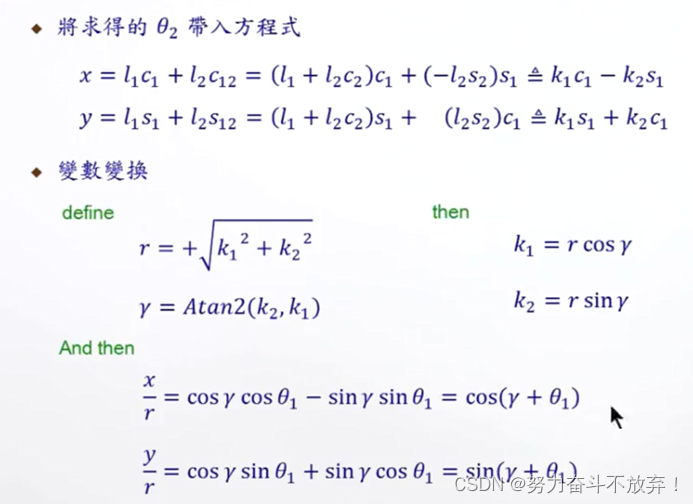 ◆ 將求得的 θ₂ 帶入方程式
x = l₁c₁ + l₂c₁₂ = (l₁ + l₂c₂)c₁ + (−l₂s₂)s₁ ≜ k₁c₁ − k₂s₁
y = l₁s₁ + l₂s₁₂ = (l₁ + l₂c₂)s₁ + (l₂s₂)c₁ ≜ k₁s₁ + k₂c₁
◆ 變數變換
define then
r = +√(k₁² + k₂²) k₁ = r cos γ
γ = Atan2(k₂, k₁) k₂ = r sin γ
And then
x/r = cos γ cos θ₁ − sin γ sin θ₁ = cos(γ + θ₁)
y/r = cos γ sin θ₁ + sin γ cos θ₁ = sin(γ + θ₁)
CSDN @努力奋斗不放弃！